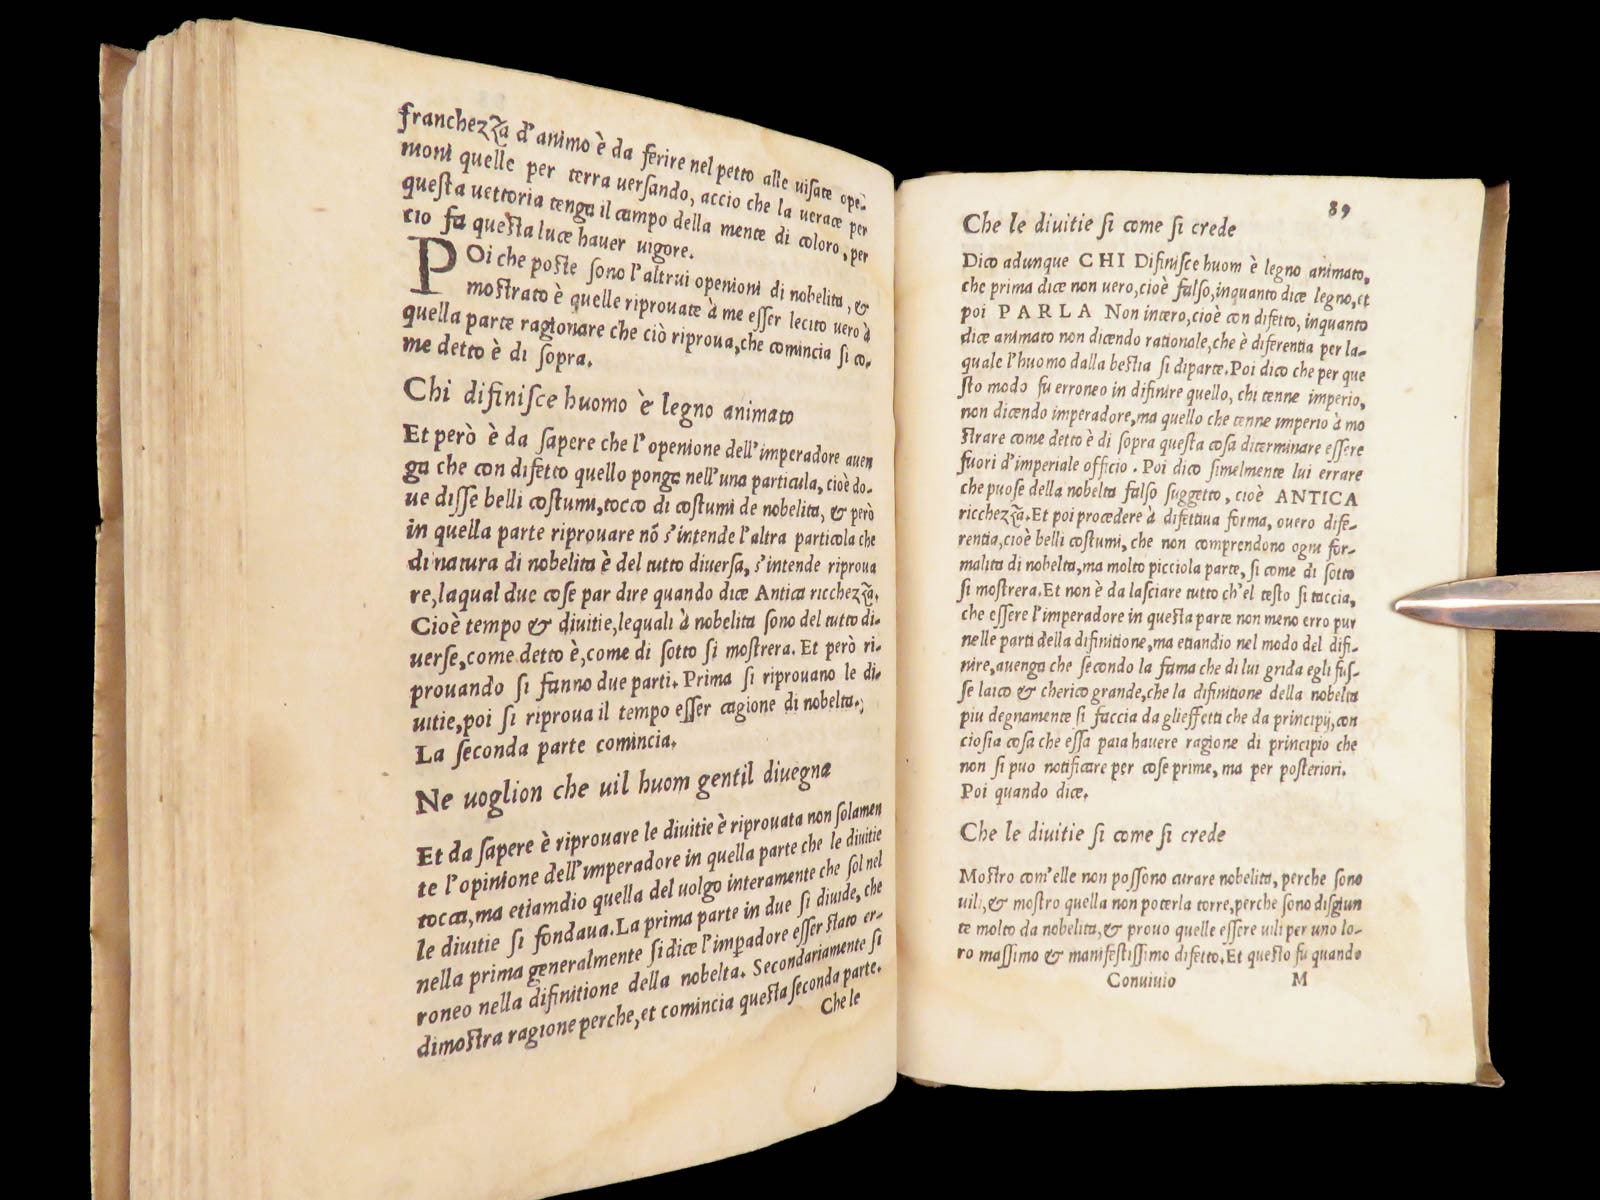 franchezza d'animo è da ferire nel petto alle uisate ope-
nioni quelle per terra uersando, accio che la uerace per
questa uettoria tenga il campo della mente di coloro, per
cio fa questa luce hauer uigore.
POi che poste sono l'altrui openioni di nobelita, &
mostrato è quelle riprouate à me esser lecito uerò à
quella parte ragionare che ciò riproua, che comincia si co-
me detto è di sopra.
Chi difinisce huomo è legno animato
Et però è da sapere che l'openione dell'imperadore auen
ga che con difetto quello ponga nell'una particula, cioè do-
ue disse belli costumi, tocco di costumi de nobelita, & però
in quella parte riprouare nõ s'intende l'altra particola che
di natura di nobelita è del tutto diuersa, s'intende riproua
re, laqual due cose par dire quando dice Antica ricchezza.
Cioè tempo & diuitie, lequali à nobelita sono del tutto di-
uerse, come detto è, come di sotto si mostrera. Et però ri-
prouando si fanno due parti. Prima si riprouano le di-
uitie, poi si riproua il tempo esser cagione di nobelta.
La seconda parte comincia.
Ne uoglion che uil huom gentil diuegna
Et da sapere è riprouare le diuitie è riprouata non solamen
te l'opinione dell'imperadore in quella parte che le diuitie
tocca, ma etiamdio quella del uolgo interamente che sol nel
le diuitie si fondaua. La prima parte in due si diuide, che
nella prima generalmente si dice l'imꝑadore esser stato er-
roneo nella difinitione della nobelta. Secondariamente si
dimostra ragione perche, et comincia questa seconda parte.
Che le
89
Che le diuitie si come si crede
Dico adunque CHI Difinisce huom è legno animato,
che prima dice non uero, cioè falso, inquanto dice legno, et
poi PARLA Non intero, cioè con difetto, inquanto
dice animato non dicendo rationale, che è diferentia per la-
quale l'huomo dalla bestia si diparte. Poi dico che per que
sto modo fu erroneo in difinire quello, chi tenne imperio,
non dicendo imperadore, ma quello che tenne imperio à mo
strare come detto è di sopra questa cosa diterminare essere
fuori d'imperiale officio. Poi dico simelmente lui errare
che puose della nobelta falso suggetto, cioè ANTICA
ricchezza. Et poi procedere à difettiua forma, ouero dife-
rentia, cioè belli costumi, che non comprendono ogni for-
malita di nobelta, ma molto picciola parte, si come di sotto
si mostrera. Et non è da lasciare tutto ch'el testo si taccia,
che essere l'imperadore in questa parte non meno erro pur
nelle parti della difinitione, ma etiandio nel modo del difi-
nire, auenga che secondo la fama che di lui grida egli fus-
se laico & cherico grande, che la difinitione della nobelta
piu degnamente si faccia da glieffetti che da principij, con
ciosia cosa che essa paia hauere ragione di principio che
non si puo notificare per cose prime, ma per posteriori.
Poi quando dice.
Che le diuitie si come si crede
Mostro com'elle non possono curare nobelita, perche sono
uili, & mostro quella non poterla torre, perche sono disgiun
te molto da nobelita, & prouo quelle essere uili per uno lo-
ro massimo & manifestissimo difetto. Et questo fu quando
Conuiuio M